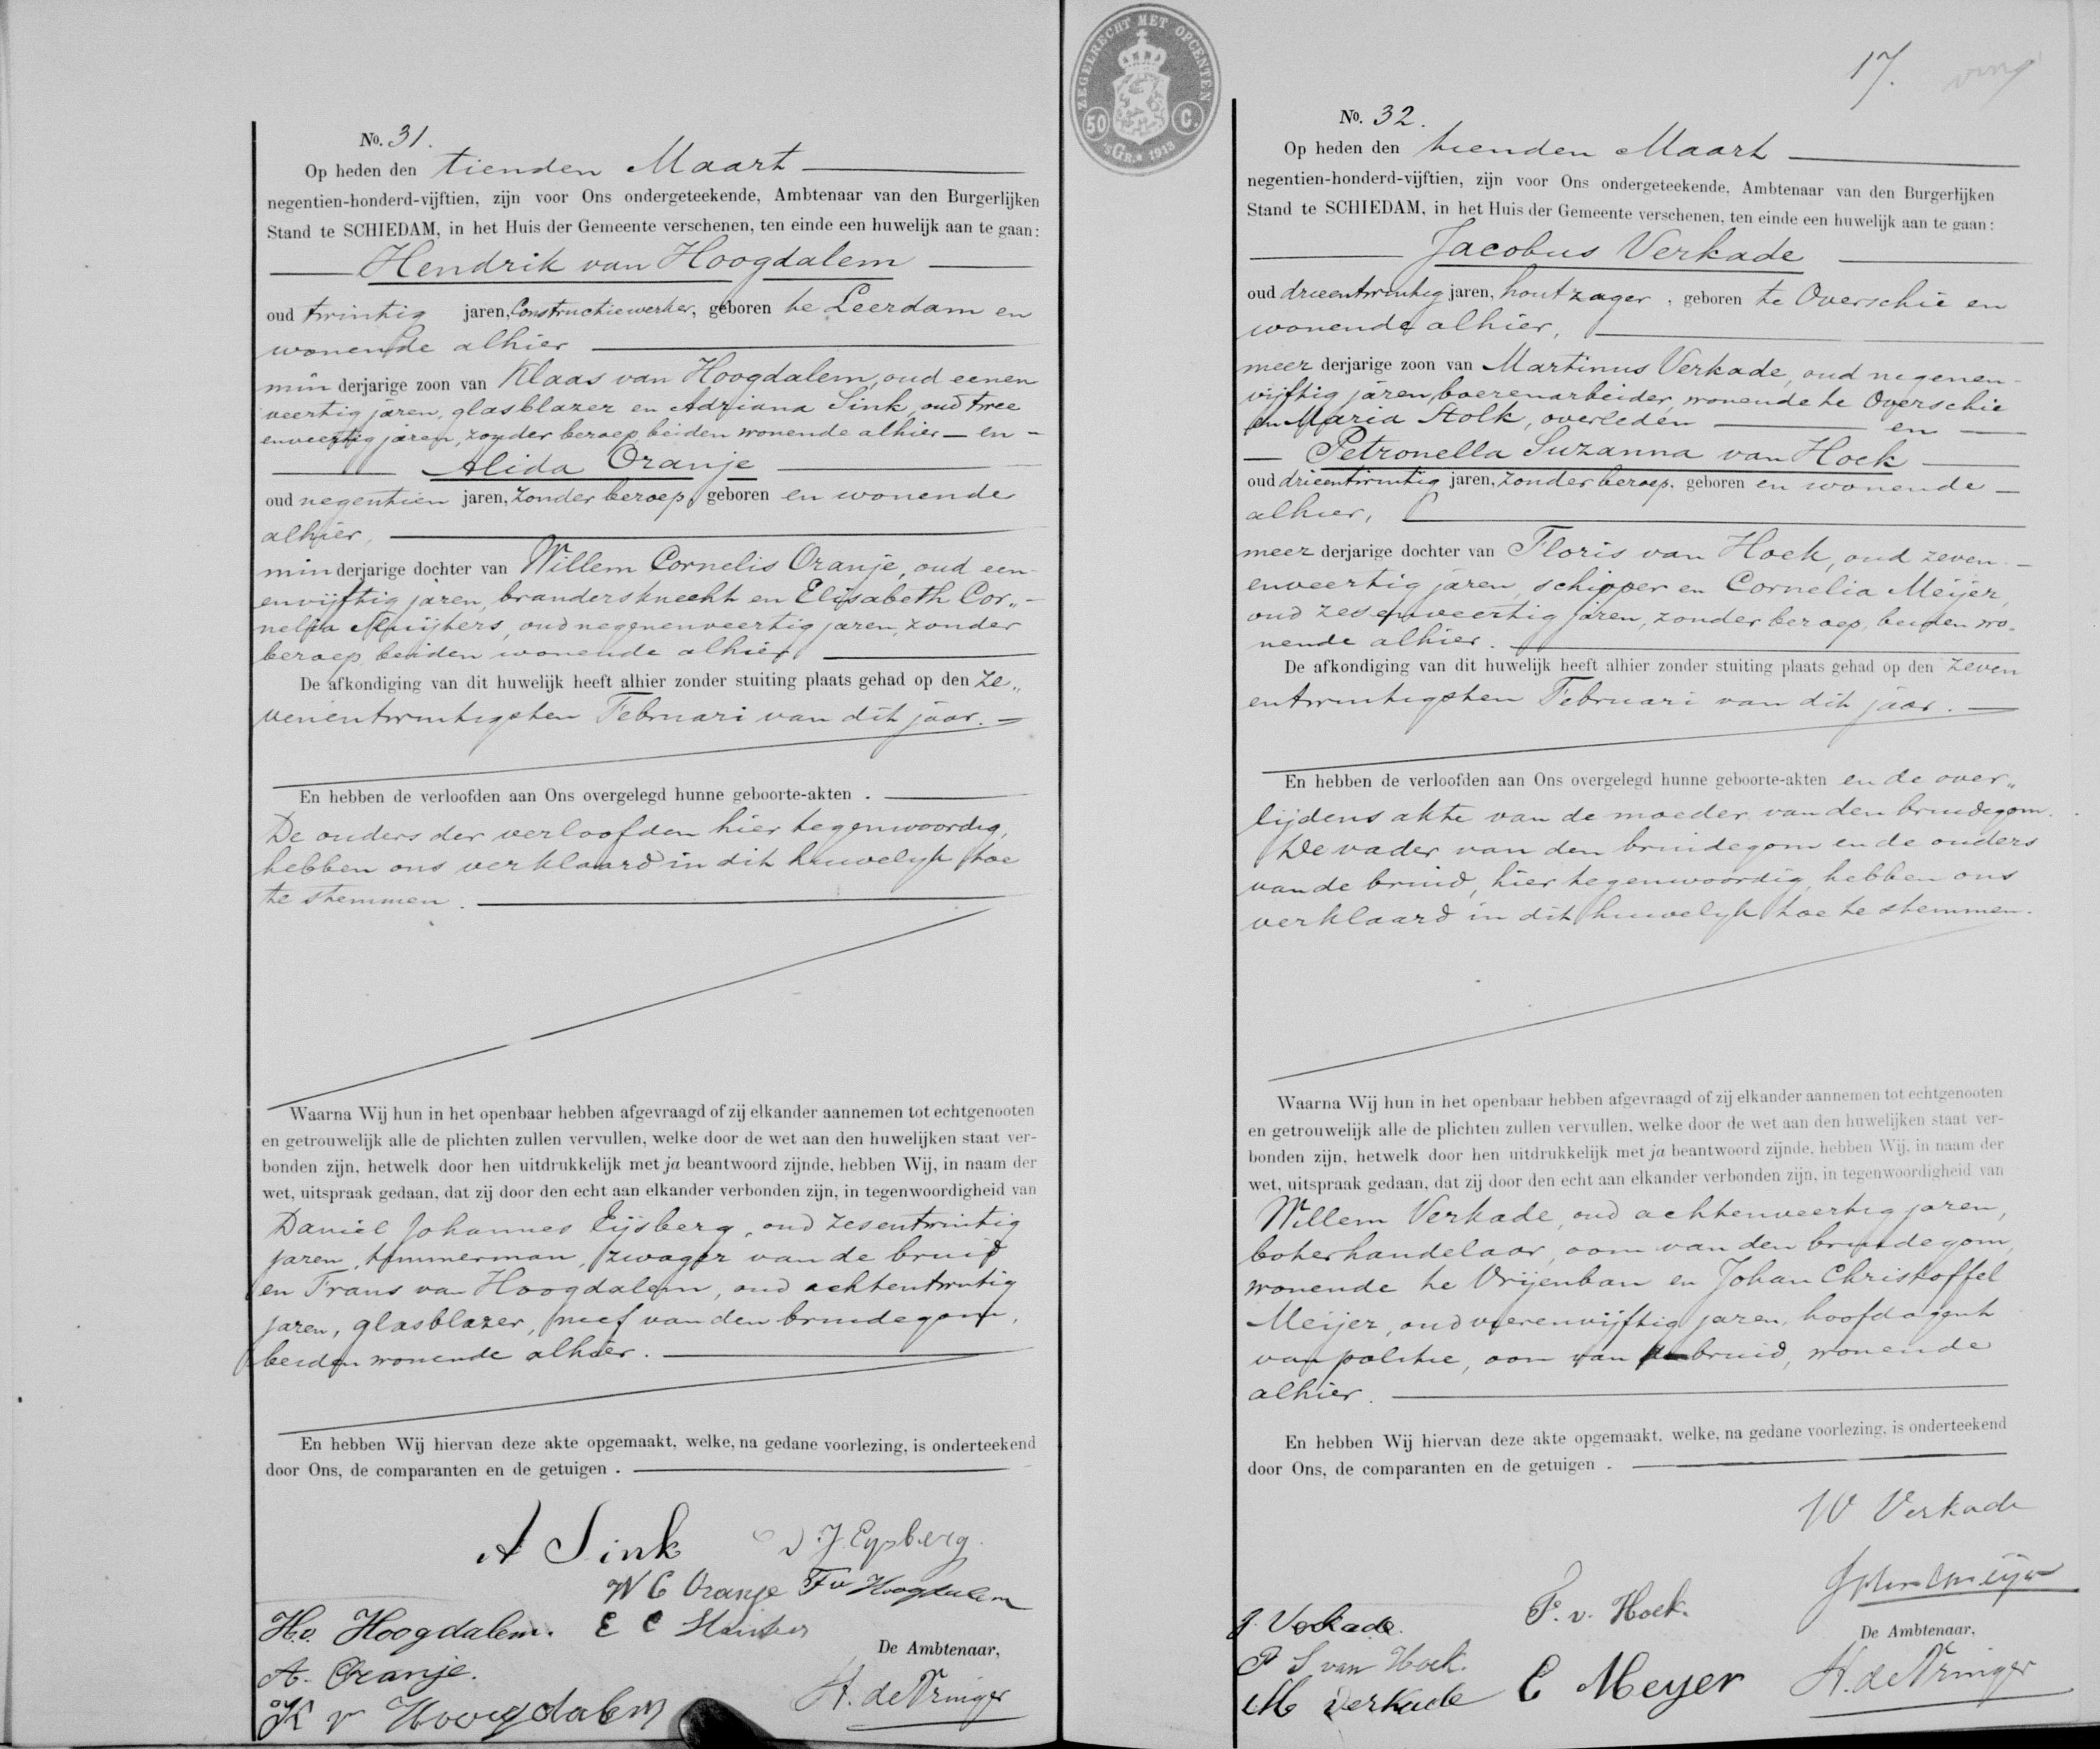 No. 31.
Op heden den tienden Maart
negentien-honderd-vijftien, zijn voor Ons ondergeteekende, Ambtenaar van den Burgerlijken
Stand te SCHIEDAM, in het Huis der Gemeente verschenen, ten einde een huwelijk aan te gaan:
Hendrik van Hoogdalem
oud twintig jaren, Constructiewerker, geboren te Leerdam en
wonende alhier
min derjarige zoon van Klaas van Hoogdalem, oud eenen
veertig jaren, glasblazer en Adriana Sink, oud twee
enveertig jaren, zonder beroep, beiden wonende alhier — en —
Alida Oranje
oud negentien jaren, zonder beroep, geboren en wonende
alhier,
min derjarige dochter van Willem Cornelis Oranje, oud een
envijftig jaren, brandersknecht en Elisabeth Cor„
nelia, oud negenenveertig jaren, zonder
beroep, beiden wonende alhier.
De afkondiging van dit huwelijk heeft alhier zonder stuiting plaats gehad op den ze„
venentwintigsten Februari van dit jaar. —
En hebben de verloofden aan Ons overgelegd hunne geboorte-akten .
De ouders der verloofden hier tegenwoordig,
hebben ons verklaard in dit huwelijk toe
te stemmen.
Waarna Wij hun in het openbaar hebben afgevraagd of zij elkander aannemen tot echtgenooten
en getrouwelijk alle de plichten zullen vervullen, welke door de wet aan den huwelijken staat ver-
bonden zijn, hetwelk door hen uitdrukkelijk met ja beantwoord zijnde, hebben Wij, in naam der
wet, uitspraak gedaan, dat zij door den echt aan elkander verbonden zijn, in tegenwoordigheid van
Daniel Johannes Eijsberg, oud zesentwintig
jaren, timmerman, zwager van de bruid
en Frans van Hoogdalem, oud achtentwintig
jaren, glasblazer, neef van den bruidegom,
beiden wonende alhier.
En hebben Wij hiervan deze akte opgemaakt, welke, na gedane voorlezing, is onderteekend
door Ons, de comparanten en de getuigen .
A Sink D. J. Eysberg.
W C Oranje F v Hoogdalem
H. v. Hoogdalem. E C
De Ambtenaar,
A. Oranje.
K v Hoogdalem
ZEGELRECHT MET OPCENTEN
50 C.
'sGR. 1913
17.
No. 32.
Op heden den tienden Maart
negentien-honderd-vijftien, zijn voor Ons ondergeteekende, Ambtenaar van den Burgerlijken
Stand te SCHIEDAM, in het Huis der Gemeente verschenen, ten einde een huwelijk aan te gaan:
Jacobus Verkade
oud drieentwintig jaren, houtzager, geboren te Overschie en
wonende alhier,
meer derjarige zoon van Martinus Verkade, oud negenen-
vijftig jaren, boerenarbeider, wonende te Overschie
en Maria Stolk, overleden — en —
Petronella Suzanna van Hoek
oud drieentwintig jaren, zonder beroep, geboren en wonende —
alhier,
meer derjarige dochter van Floris van Hoek, oud zeven —
enveertig jaren, schipper en Cornelia Meijer,
oud zesenveertig jaren, zonder beroep, beiden wo„
nende alhier.
De afkondiging van dit huwelijk heeft alhier zonder stuiting plaats gehad op den zeven
entwintigsten Februari van dit jaar. —
En hebben de verloofden aan Ons overgelegd hunne geboorte-akten en de over„
lijdens akte van de moeder van den bruidegom.
De vader van den bruidegom en de ouders
van de bruid, hier tegenwoordig, hebben ons
verklaard in dit huwelijk toe te stemmen.
Waarna Wij hun in het openbaar hebben afgevraagd of zij elkander aannemen tot echtgenooten
en getrouwelijk alle de plichten zullen vervullen, welke door de wet aan den huwelijken staat ver-
bonden zijn, hetwelk door hen uitdrukkelijk met ja beantwoord zijnde, hebben Wij, in naam der
wet, uitspraak gedaan, dat zij door den echt aan elkander verbonden zijn, in tegenwoordigheid van
Willem Verkade, oud achtenveertig jaren,
boterhandelaar, oom van den bruidegom,
wonende te Vrijenban en Johan Christoffel
Meijer, oud vierenvijftig jaren, hoofdagent
van politie, oom van de bruid, wonende
alhier.
En hebben Wij hiervan deze akte opgemaakt, welke, na gedane voorlezing, is onderteekend
door Ons, de comparanten en de getuigen .
W Verkade
J. Verkade. F. v. Hoek.
De Ambtenaar,
P S van Hoek.
M Verkade C Meyer